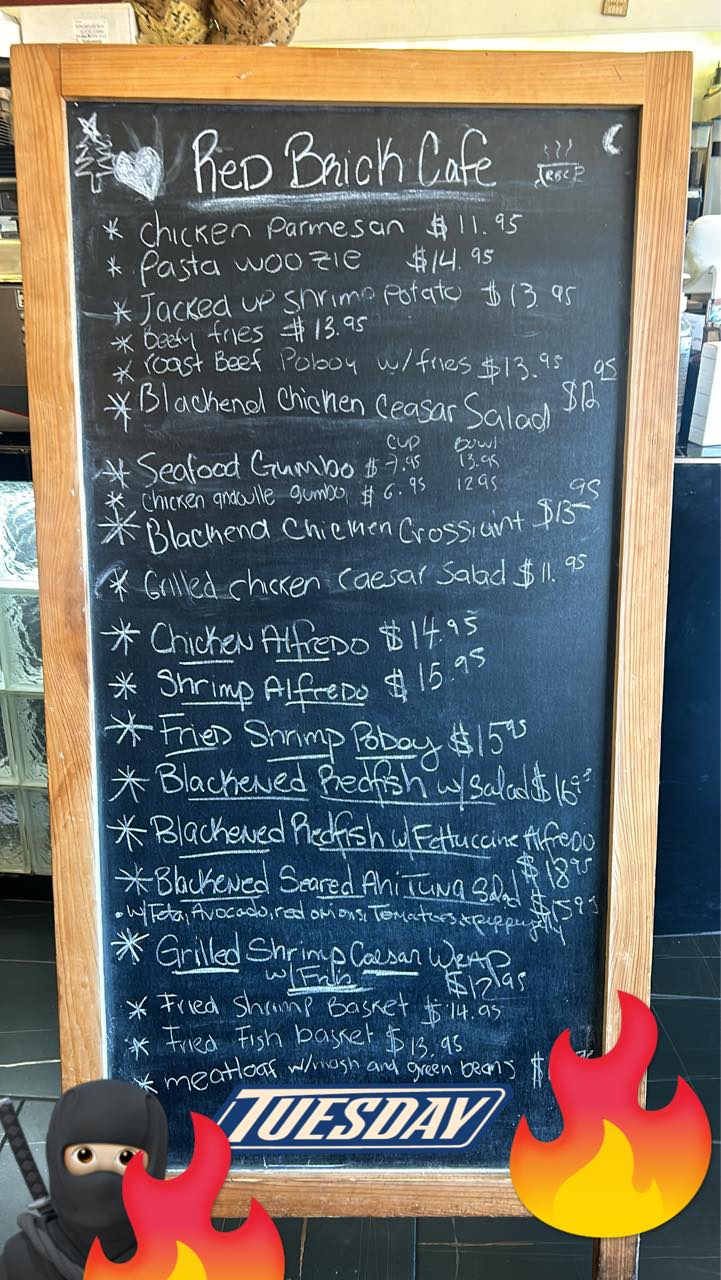 RED Brick Cafe
RBC
* Chicken Parmesan $11.95
* Pasta woozie $14.95
* Jacked up shrimp potato $13.95
* Beefy fries $13.95
* roast Beef Poboy w/fries $13.95
* Blackend Chicken Ceasar Salad $12.95
Cup Bowl
* Seafood Gumbo $7.95 13.95
* chicken andoulle gumbo $6.95 12.95
* Blackend Chicken Crossiant $13.95
* Grilled chicken Caesar Salad $11.95
* Chicken Alfredo $14.95
* Shrimp Alfredo $15.95
* Fried Shrimp Poboy $15.95
* Blackened Redfish w/salad $16.95
* Blackened Redfish w/Fettuccine Alfredo
$18.95
* Blackened Seared Ahi Tuna Salad $15.95
• w/Feta, Avocado, red onions, Tomatoes & pepperjelly
* Grilled Shrimp Caesar Wrap
w/Fries $12.95
* Fried Shrimp Basket $14.95
* Fried Fish basket $13.95
* meatloaf w/mash and green beans $
TUESDAY